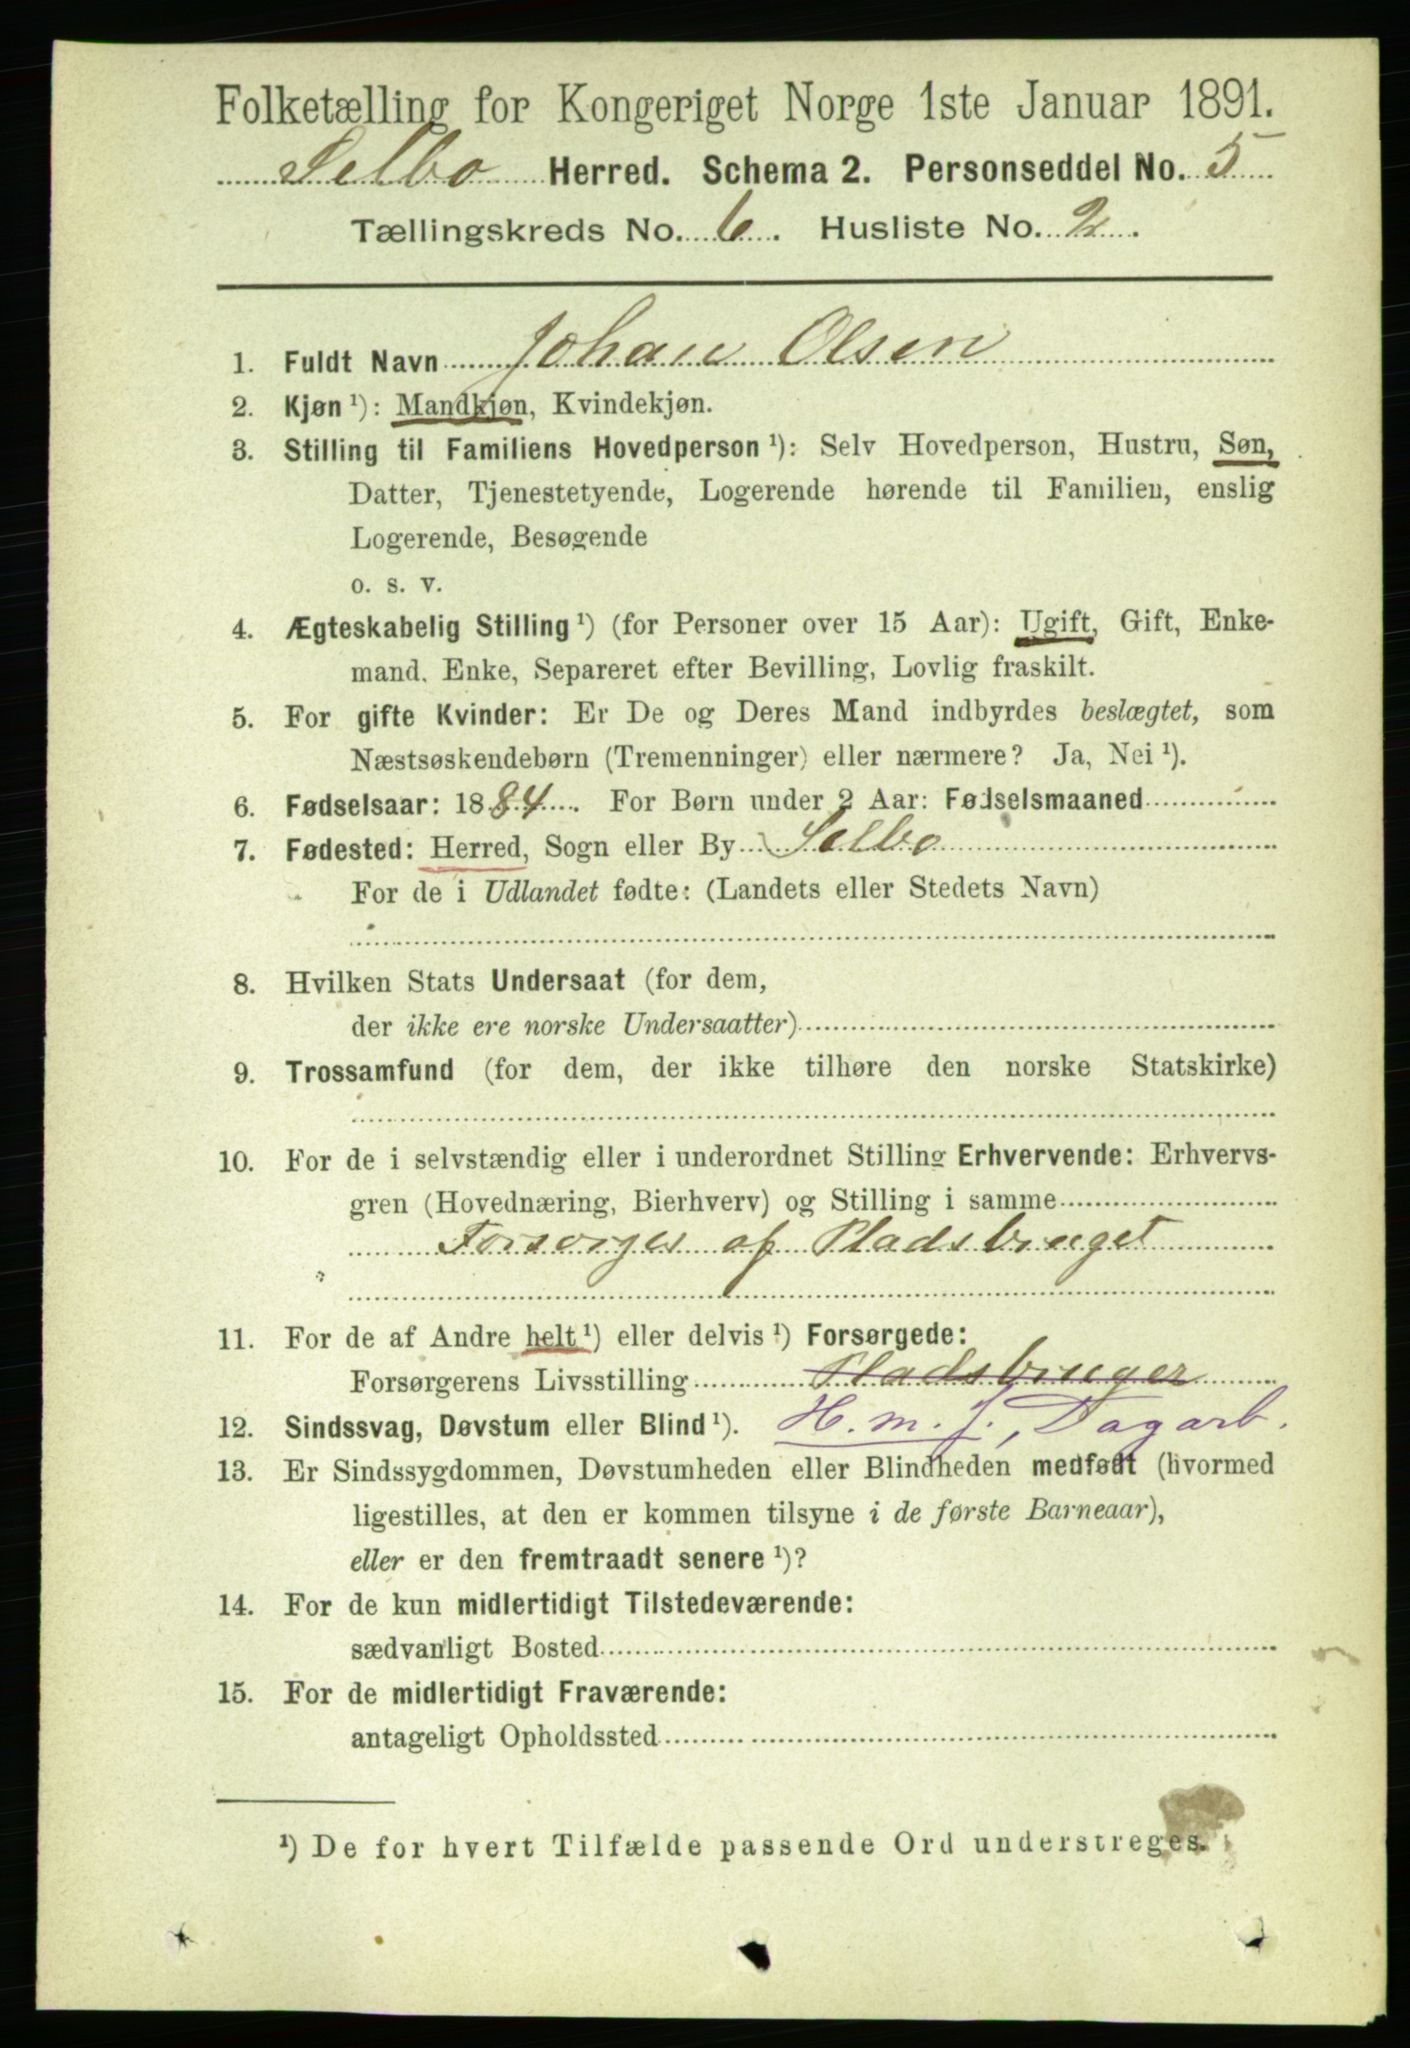 Folketælling for Kongeriget Norge 1ste Januar 1891.
Selbo Herred. Schema 2. Personseddel No. 5
Tællingskreds No. 6. Husliste No. 2.
1. Fuldt Navn Johan Olsen
2. Kjøn ¹): Mandkjøn, Kvindekjøn.
3. Stilling til Familiens Hovedperson ¹): Selv Hovedperson, Hustru, Søn,
Datter, Tjenestetyende, Logerende hørende til Familien, enslig
Logerende, Besøgende
o. s. v.
4. Ægteskabelig Stilling ¹) (for Personer over 15 Aar): Ugift, Gift, Enke-
mand, Enke, Separeret efter Bevilling, Lovlig fraskilt.
5. For gifte Kvinder: Er De og Deres Mand indbyrdes beslægtet, som
Næstsøskendebørn (Tremenninger) eller nærmere? Ja, Nei ¹).
6. Fødselsaar: 1884. For Børn under 2 Aar: Fødselsmaaned
7. Fødested: Herred, Sogn eller By Selbo
For de i Udlandet fødte: (Landets eller Stedets Navn)
8. Hvilken Stats Undersaat (for dem,
der ikke ere norske Undersaatter)
9. Trossamfund (for dem, der ikke tilhøre den norske Statskirke)
10. For de i selvstændig eller i underordnet Stilling Erhvervende: Erhvervs-
gren (Hovednæring, Bierhverv) og Stilling i samme
Forsörges af Pladsbruget
11. For de af Andre helt ¹) eller delvis ¹) Forsørgede:
Forsørgerens Livsstilling Pladsbruger
12. Sindssvag, Døvstum eller Blind ¹). H. m. J., Dagarb.
13. Er Sindssygdommen, Døvstumheden eller Blindheden medfødt (hvormed
ligestilles, at den er kommen tilsyne i de første Barneaar),
eller er den fremtraadt senere ¹)?
14. For de kun midlertidigt Tilstedeværende:
sædvanligt Bosted
15. For de midlertidigt Fraværende:
antageligt Opholdssted
¹) De for hvert Tilfælde passende Ord understreges.